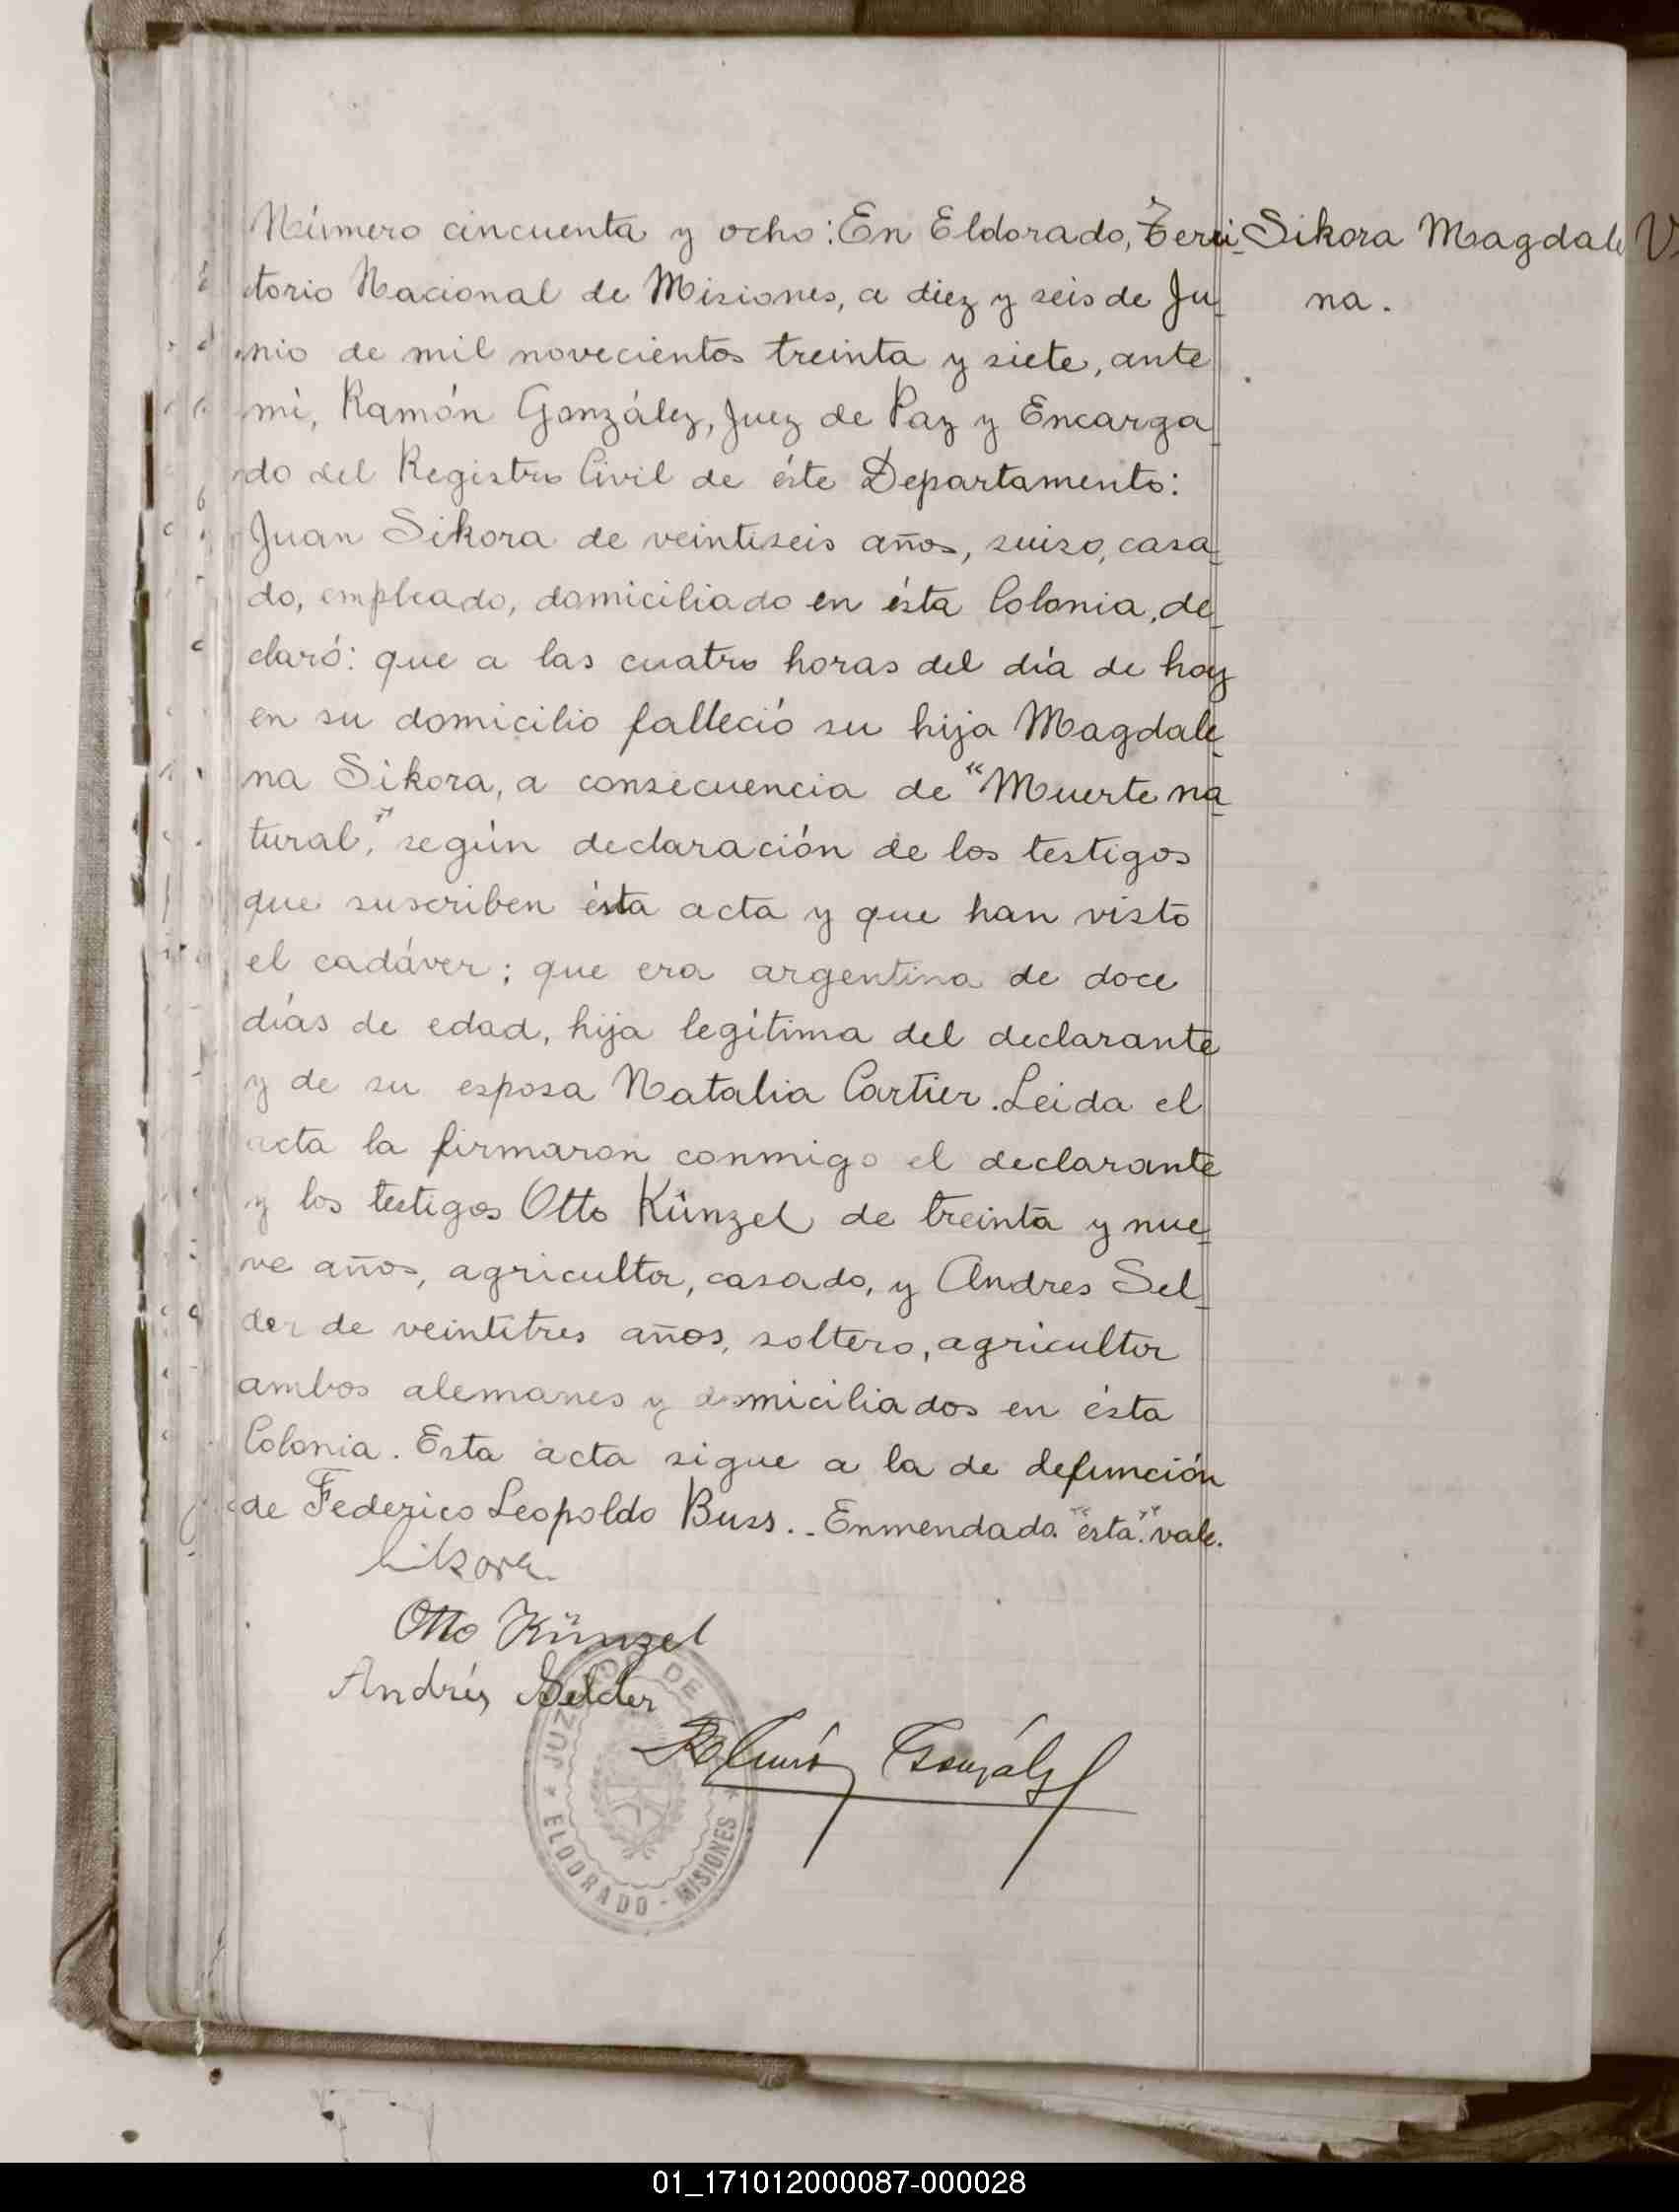 Número cincuenta y ocho: En Eldorado, Terri-
torio Nacional de Misiones, a diez y seis de Ju-
nio de mil novecientos treinta y siete, ante
mí, Ramón González, Juez de Paz y Encarga-
do del Registro Civil de éste Departamento:
Juan Sikora de veintiseis años, suizo, casa-
do, empleado, domiciliado en ésta Colonia, de-
claró: que a las cuatro horas del día de hoy
en su domicilio falleció su hija Magdale-
na Sikora, a consecuencia de "Muerte na-
tural", según declaración de los testigos
que suscriben ésta acta y que han visto
el cadáver; que era argentina de doce
días de edad, hija legítima del declarante
y de su esposa Natalia Cartier. Leida el
acta la firmaron conmigo el declarante
y los testigos Otto Künzel de treinta y nue-
ve años, agricultor, casado, y Andres Sel-
der de veintitres años, soltero, agricultor
ambos alemanes y domiciliados en ésta
Colonia. Esta acta sigue a la de defunción
de Federico Leopoldo Buss.- Enmendado "ésta": vale.
Sikora Magdale
na.
Sikora
Otto Künzel
Andrés Selder
Ramón González
JUZGADO DE
ELDORADO - MISIONES
01_171012000087-000028